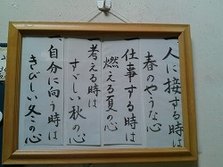 人に接する時は
春のやうな心
仕事する時は
燃える夏の心
考える時は
すゞしい秋の心
自分に向う時は
きびしい冬の心